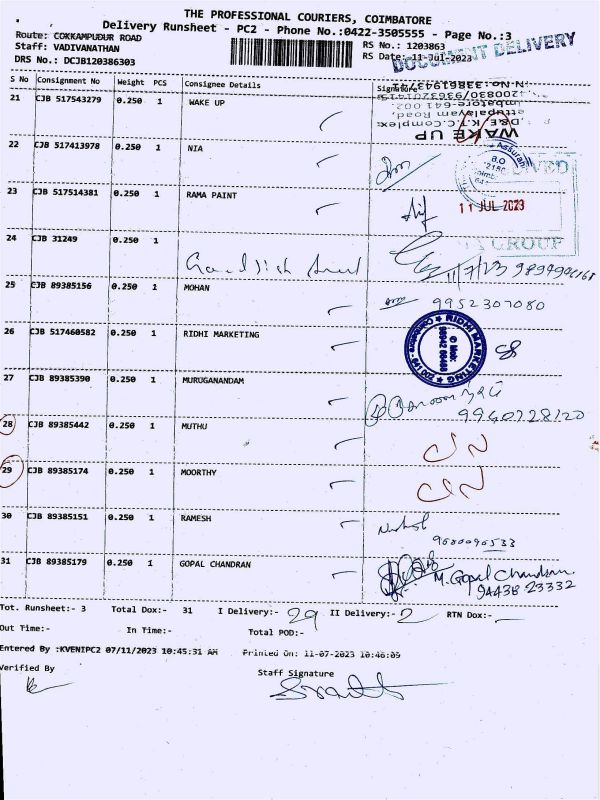 THE PROFESSIONAL COURIERS, COIMBATORE
Delivery Runsheet - PC2 - Phone No.:0422-3505555 - Page No.:3
Route: COKKAMPUDUR ROAD
RS No.: 1203863
Staff: VADIVANATHAN
RS Date: 11-Jul-2023
DOCUMENT DELIVERY
DRS No.: DCJB120386303
S No Consignment No Weight PCS Consignee Details Signature
21 CJB 517543279 0.250 1 WAKE UP
WAKE UP
22 CJB 517413978 0.250 1 NIA
23 CJB 517514381 0.250 1 RAMA PAINT
11 JUL 2023
GROUP
24 CJB 31249 0.250 1
11/7/23
25 CJB 89385156 0.250 1 MOHAN
9952307080
26 CJB 517460582 0.250 1 RIDHI MARKETING
RIDHI MARKETING
27 CJB 89385390 0.250 1 MURUGANANDAM
9940728120
28 CJB 89385442 0.250 1 MUTHU
CN
29 CJB 89385174 0.250 1 MOORTHY
CN
30 CJB 89385151 0.250 1 RAMESH
31 CJB 89385179 0.250 1 GOPAL CHANDRAN
M. Gopal Chandran
94438 23332
Tot. Runsheet:- 3 Total Dox:- 31 I Delivery:- 29 II Delivery:- 2 RTN Dox:-
Out Time:- In Time:- Total POD:-
Entered By :KVENIPC2 07/11/2023 10:45:31 AM Printed On: 11-07-2023 10:46:05
Verified By
Staff Signature